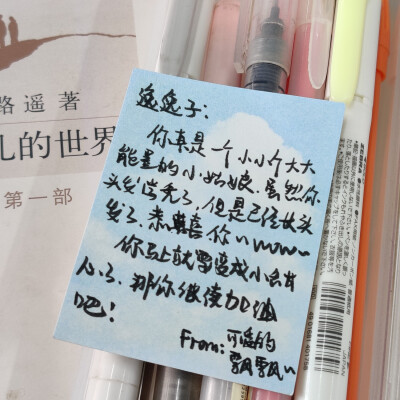 路遥著
凡的世界
第一部
逸逸子:
你真是一个小小个大大
能量的小姑娘,虽然你
头发学秃了,但是已经没头
发了.恭喜你~wow~
你马上就要变成小
人了,那你继续加油
吧!
From:可爱的
飘飘~